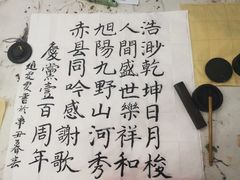 浩渺乾坤日月梭
人間盛世樂祥和
旭陽九野山河秀
赤县同吟感謝歌
慶黨壹百周年
书於辛丑春长